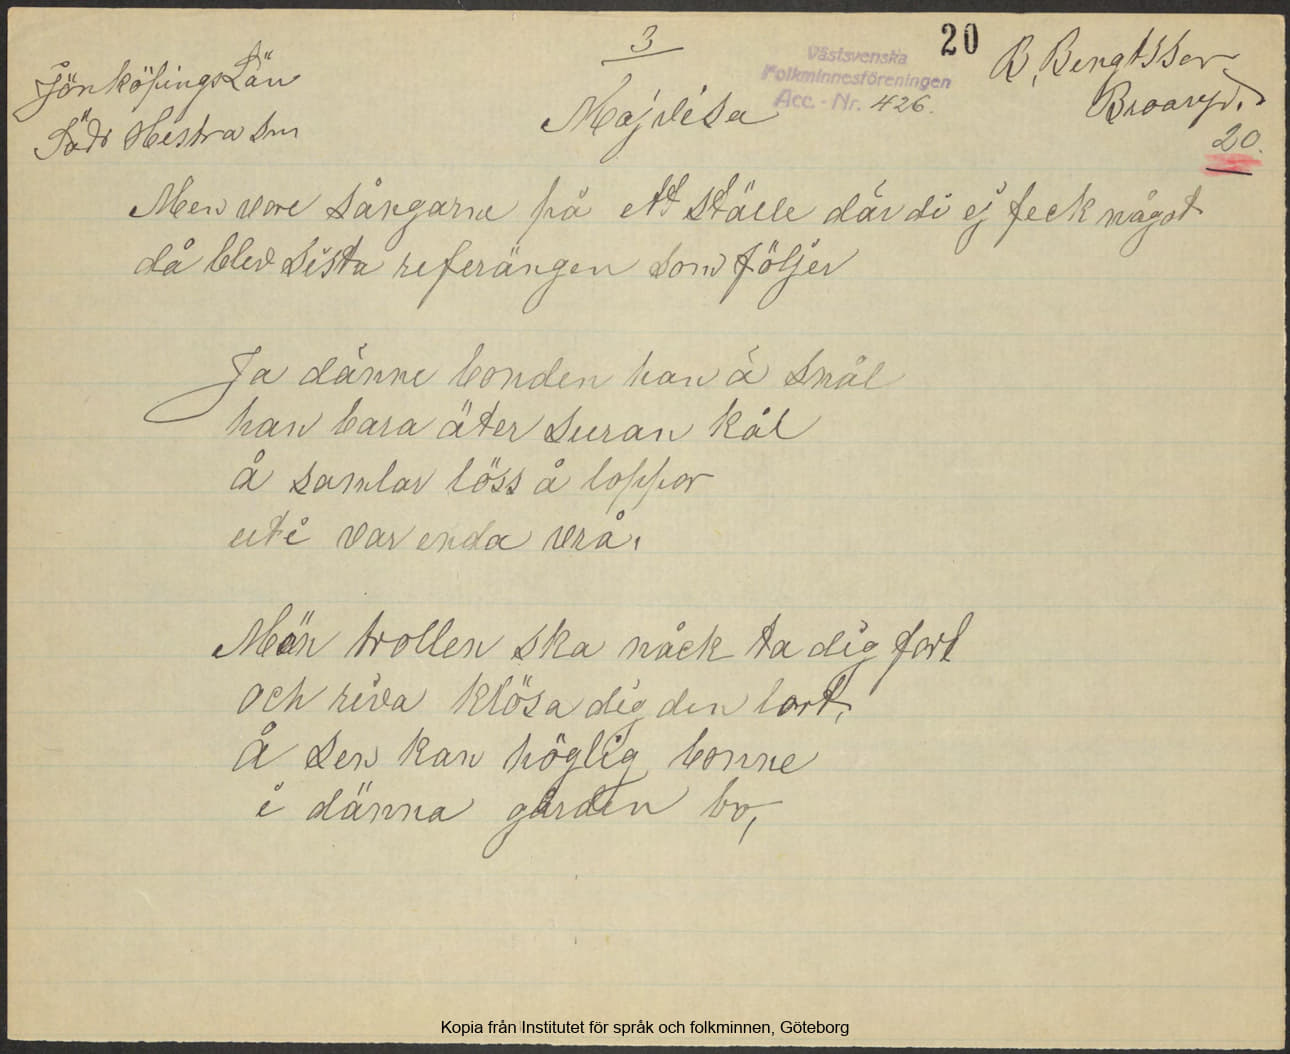 3
20
B. Bengtsson
Broaryd.
20.
Jönköpings Län
Södr Hestra sn
Västsvenska
Folkminnesföreningen
Acc. - Nr. 426.
Majvisa
Men vore sångarne på ett ställe där di ej feck något
då blev sista referängen som följer
Ja dänne bonden han ä snål
han bara äter suran kål
å samlar löss å loppor
uti varenda vrå.
Män trollen ska nåck ta dig fort
och riva klösa dig din lort,
Å sen kan höglig bonne
i dänna gården bo,
Kopia från Institutet för språk och folkminnen, Göteborg